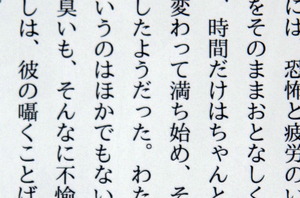 には　恐怖と疲労のい
をそのままおとなしく
、時間だけはちゃんと
変わって満ち始め、そ
したようだった。わた
いうのはほかでもない
臭いも、そんなに不愉
しは、彼の囁くことば